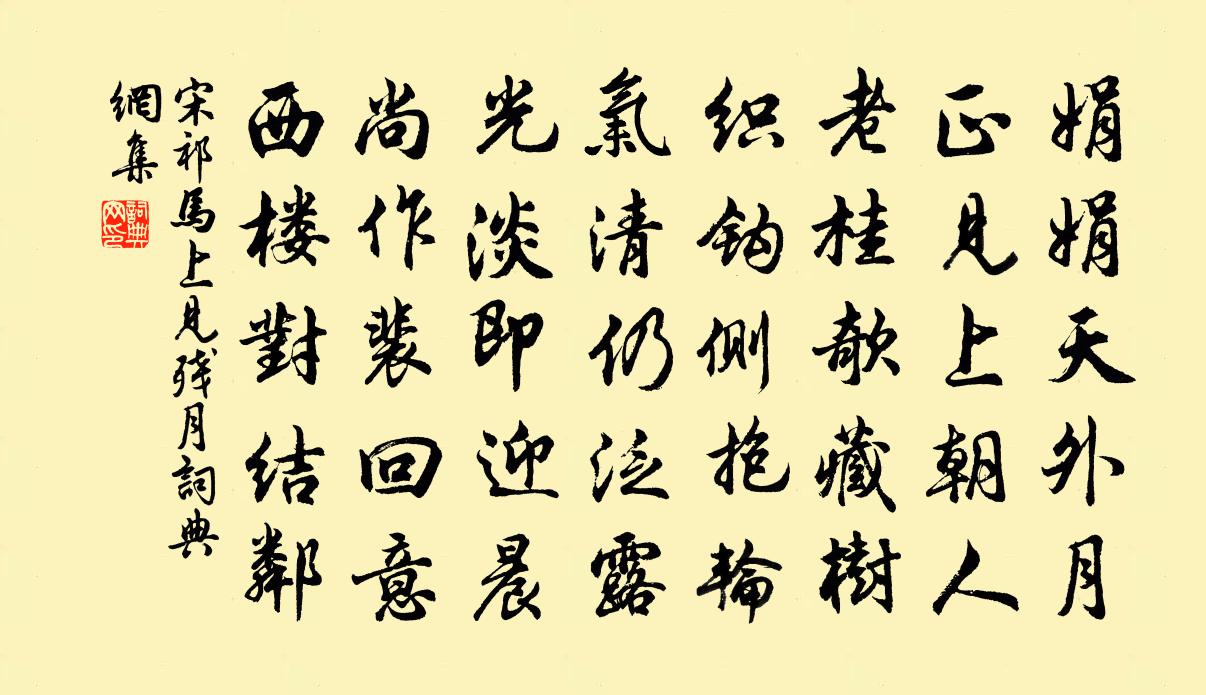 娟娟天外月
正見上朝人
老桂欹藏樹
织鈎側抱輪
氣清仍泛露
光淡即迎晨
尚作裴回意
西楼對结鄰
宋祁馬上見残月詞典
網集
詞典
网印